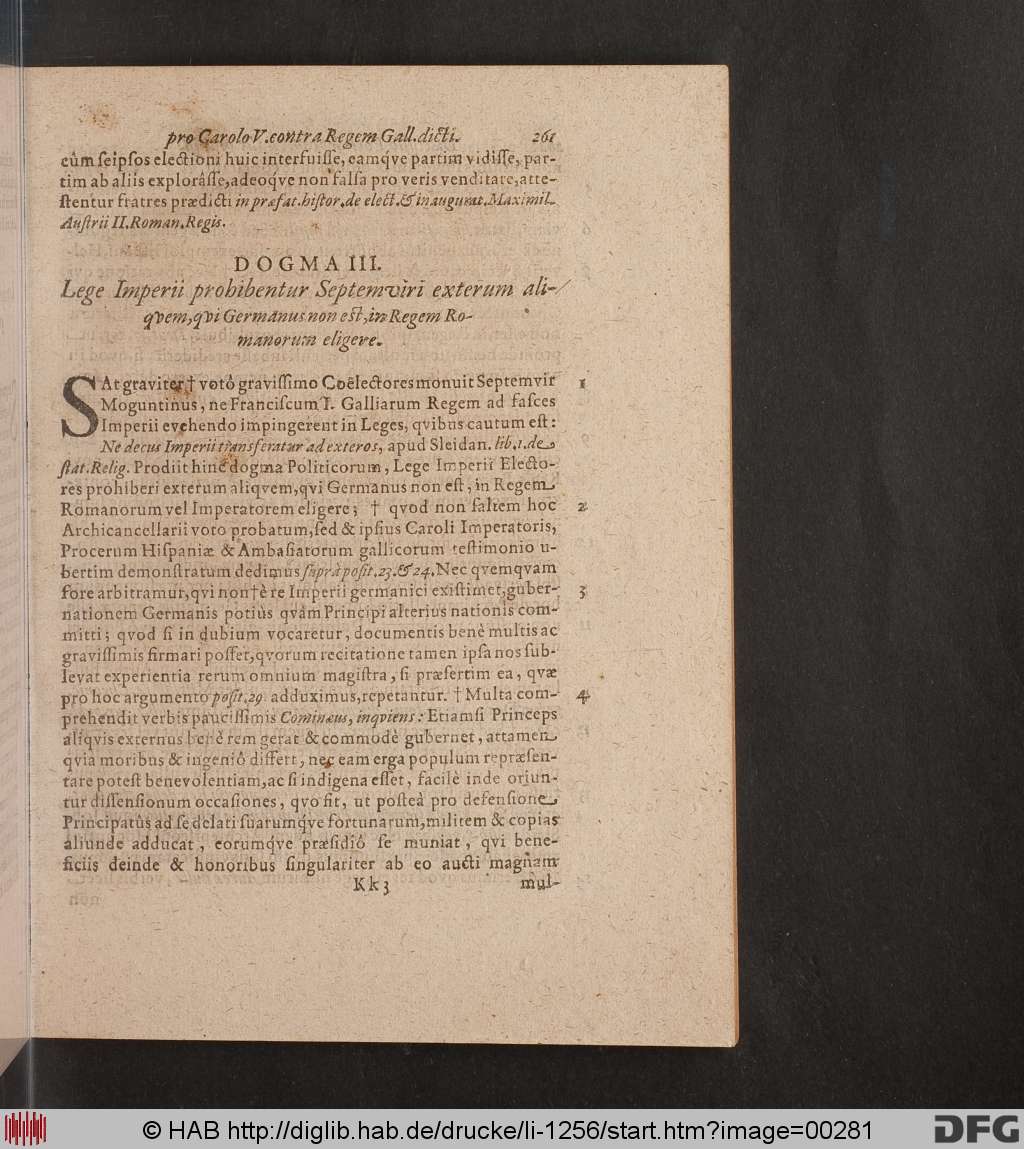 pro Carolo V. contra Regem Gall. dicti. 261
cûm ſeipſos electioni huic interfuiſſe, eamqve partim vidiſſe, par-
tim ab aliis explorâſſe, adeoqve non falſa pro veris venditare, atte-
ſtentur fratres prædicti in præfat. hiſtor. de elect. & inaugurat. Maximil.
Auſtrii II. Roman. Regis.
DOGMA III.
Lege Imperii prohibentur Septemviri exterum ali-
qvem, qvi Germanus non eſt, in Regem Ro-
manorum eligere.
SAt graviter † votô graviſſimo Coëlectores monuit Septemvir 1
Moguntinus, ne Franciſcum I. Galliarum Regem ad faſces
Imperii evehendo impingerent in Leges, qvibus cautum eſt:
Ne decus Imperii transferatur ad exteros, apud Sleidan. lib. 1. de
ſtat. Relig. Prodiit hinc dogma Politicorum, Lege Imperii Electo-
res prohiberi exterum aliqvem, qvi Germanus non eſt, in Regem
Romanorum vel Imperatorem eligere; † qvod non ſaltem hoc 2
Archicancellarii voto probatum, ſed & ipſius Caroli Imperatoris,
Procerum Hiſpaniæ & Ambaſiatorum gallicorum teſtimonio u-
bertim demonſtratum dedimus ſuprà poſit. 23. & 24. Nec qvemqvam
fore arbitramur, qvi non † è re Imperii germanici exiſtimet, guber- 3
nationem Germanis potiùs qvàm Principi alterius nationis com-
mitti; qvod ſi in dubium vocaretur, documentis benè multis ac
graviſſimis firmari poſſet, qvorum recitatione tamen ipſa nos ſub-
levat experientia rerum omnium magiſtra, ſi præſertim ea, qvæ
pro hoc argumento poſit. 29. adduximus, repetantur. † Multa com- 4
prehendit verbis pauciſſimis Cominæus, inqviens: Etiamſi Princeps
aliqvis externus benè rem gerat & commodè gubernet, attamen
qvia moribus & ingeniô differt, nec eam erga populum repræſen-
tare poteſt benevolentiam, ac ſi indigena eſſet, facilè inde oriun-
tur diſſenſionum occaſiones, qvo fit, ut poſteà pro defenſione
Principatûs ad ſe delati ſuarumqve fortunarum, militem & copias
aliunde adducat, eorumqve præſidiô ſe muniat, qvi bene-
ficiis deinde & honoribus ſingulariter ab eo aucti magnam
Kk 3 mul-
© HAB http://diglib.hab.de/drucke/li-1256/start.htm?image=00281
DFG